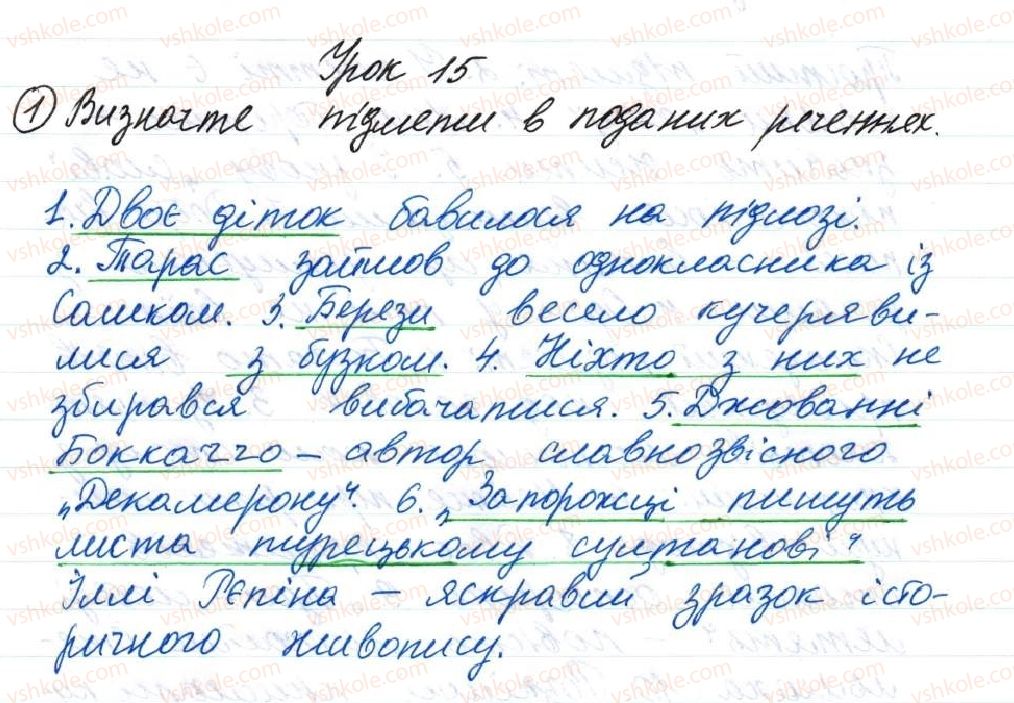 Урок 15
1 Визначте підмети в поданих реченнях.
1. Двоє діток бавилося на підлозі.
2. Тарас зайшов до однокласника із
Сашком. 3. Берези весело кучеряви-
лися з бузком. 4. Ніхто з них не
збирався вибачатися. 5. Джованні
Боккаччо – автор славнозвісного
„Декамерону“. 6. „Запорожці пишуть
листа турецькому султанові“
Іллі Рєпіна – яскравий зразок істо-
ричного живопису.